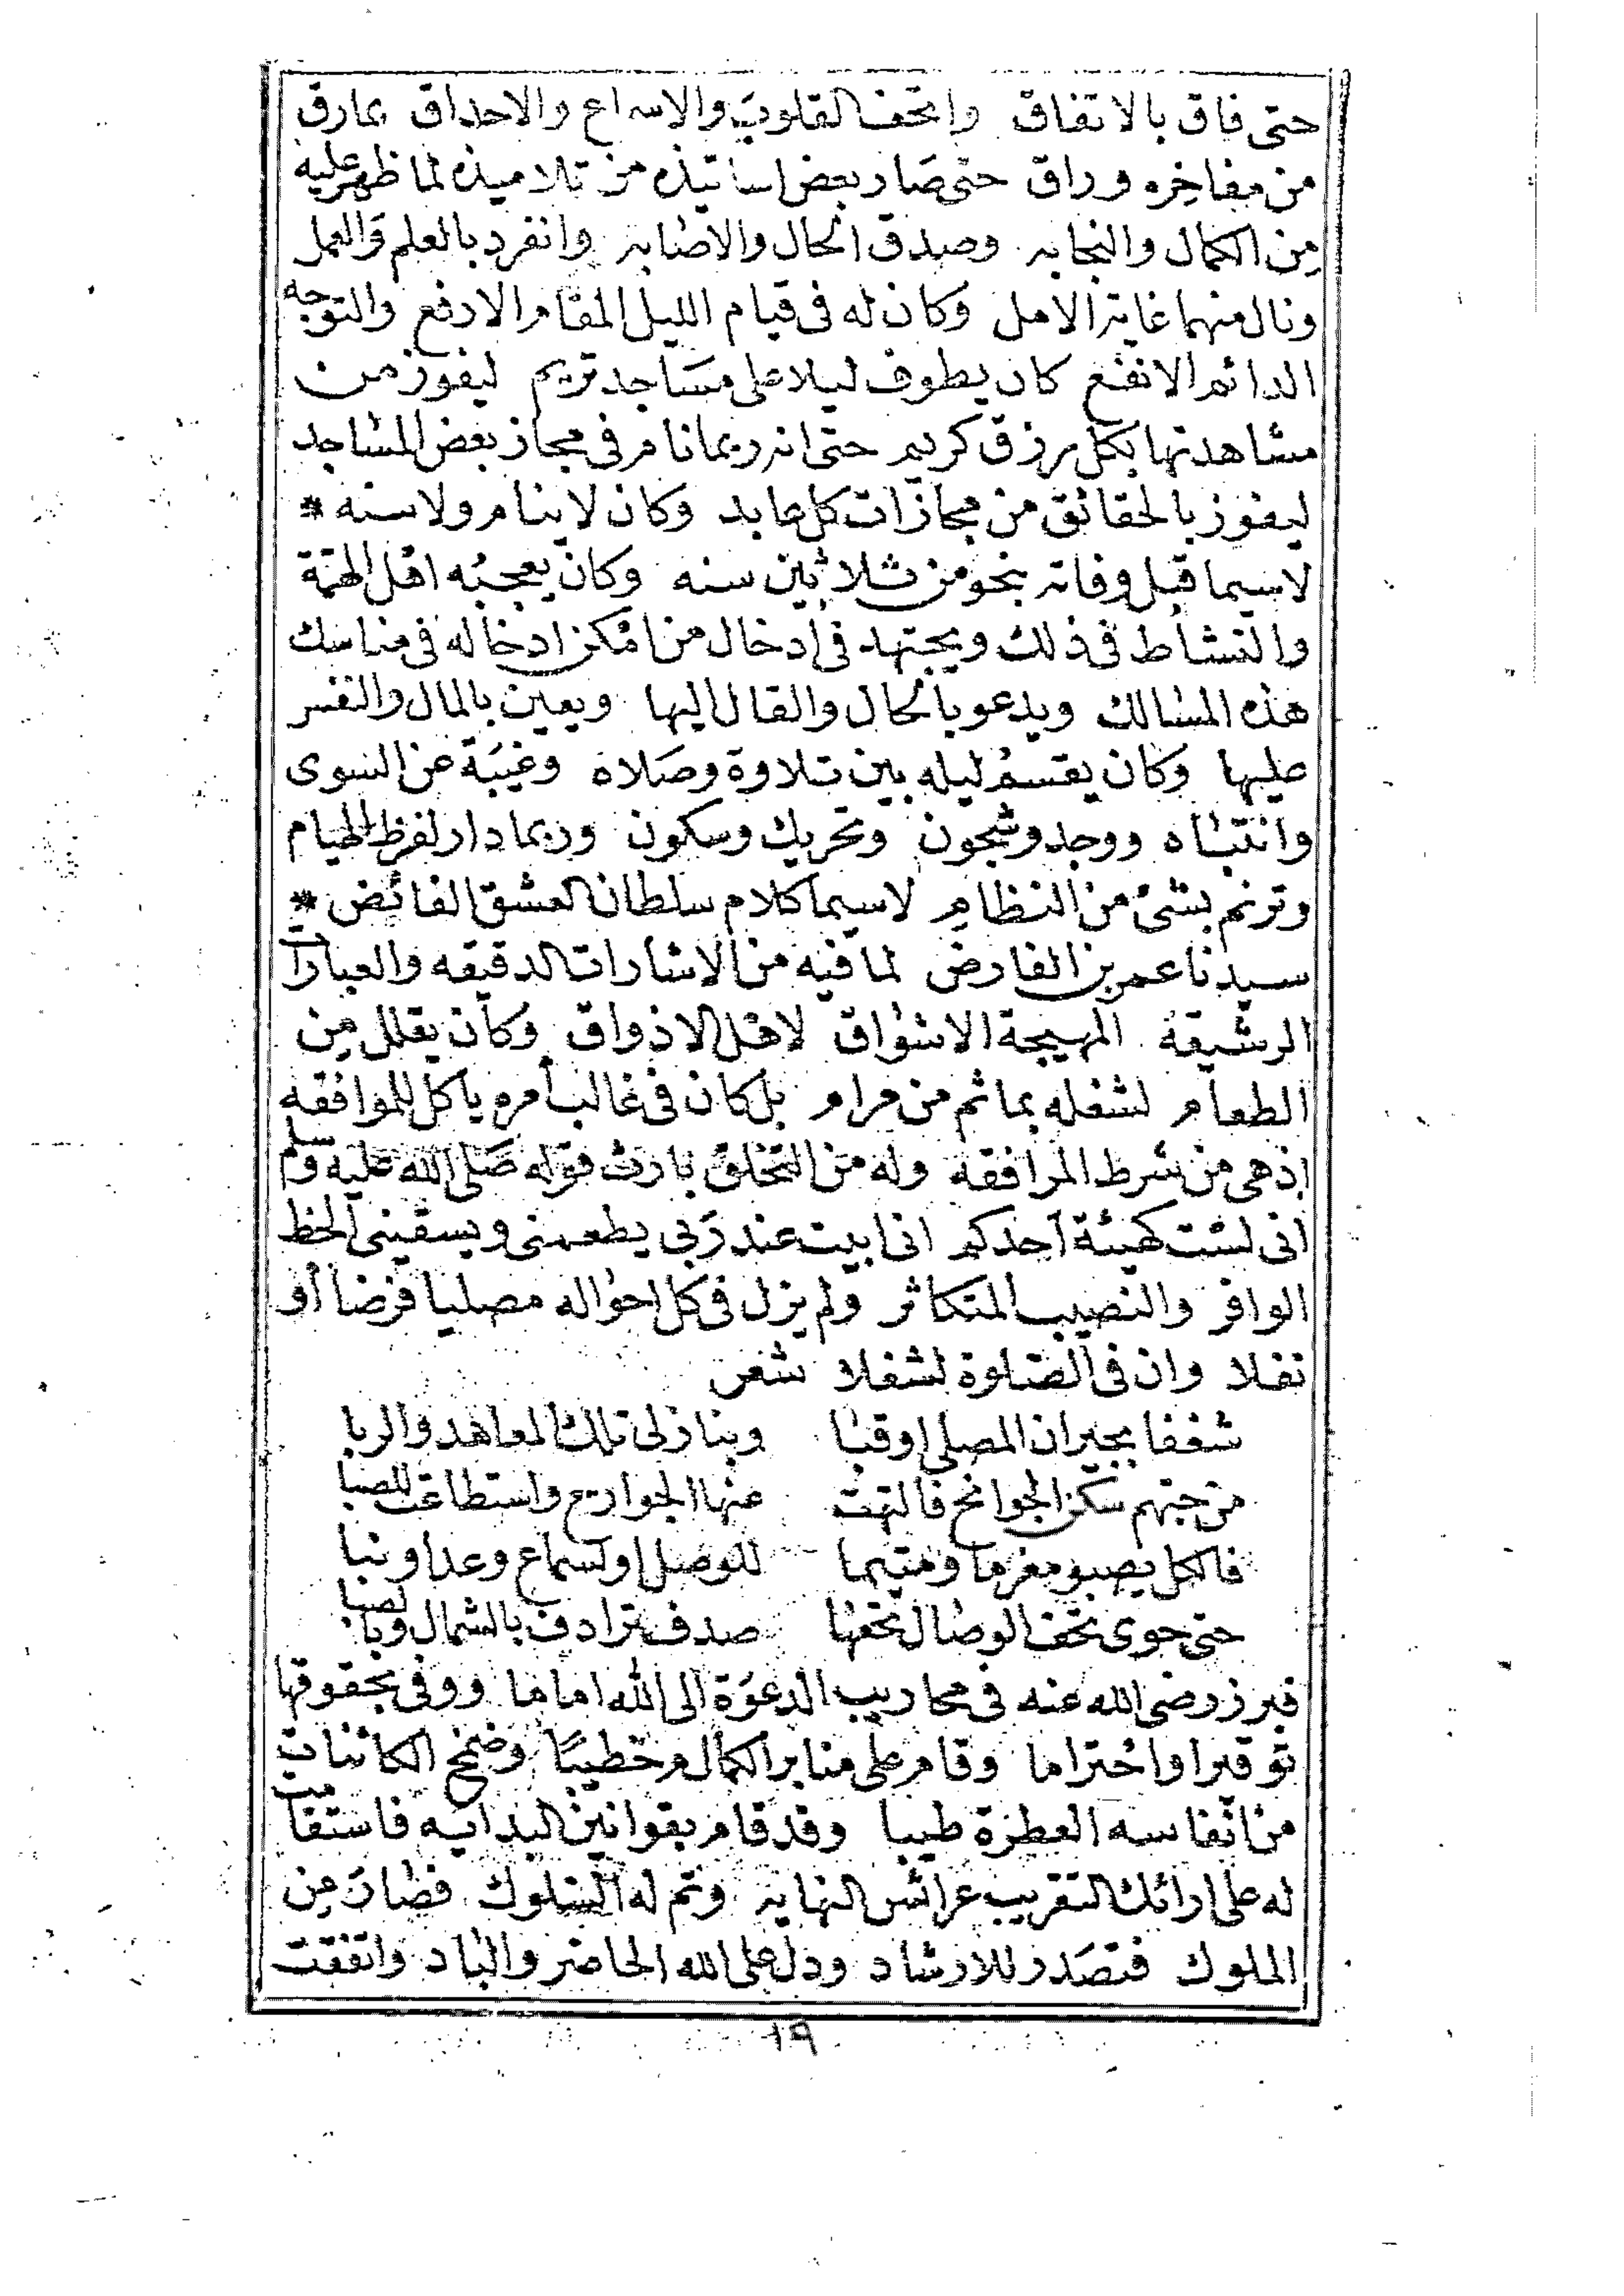 حتى فاق بالاتفاق واتحف القلوب والاسماع والاحداق بمارق
من مفاخره وراق حتى صار بعض اساتيذه من تلاميذه لما ظهر عليه
من الكمال والنجابه وصدق الحال والاصابه وانفرد بالعلم والعمل
ونال منهما غاية الامل وكان له فى قيام الليل المقام الارفع والتوجه
الدائم الانفع كان يطوف ليلا على مساجد تريم ليفوز من
مشاهدتها بكل رزق كريم حتى انه ربما نام فى مجاز بعض المساجد
ليفوز بالحقائق من مجازات كل عابد وكان لا ينام ولا سنه *
لاسيما قبل وفاته بنحو من ثلاثين سنه وكان يعجبه اهل الهمة
والنشاط فى ذلك ويجتهد فى ادخال من امكن ادخاله فى مناسك
هذه المسالك ويدعو بالحال والقال اليها ويعين بالمال والنفس
عليها وكان يقسم ليله بين تلاوة وصلاه وغيبة عن السوى
وانتباه ووجد وشجون وتحريك وسكون وربما دار لفرط الهيام
وترنم بشئ من النظام لاسيما كلام سلطان العشق الفائض *
سيدنا عمر بن الفارض لما فيه من الاشارات الدقيقه والعبارات
الرشيقة المهيجة الاشواق لاهل الاذواق وكان يقلل من
الطعام لشغله بما ثم من مرام بل كان فى غالب أمره يأكل للموافقه
اذ هى من شرط المرافقه وله من التخلق بارث قوله صلى الله عليه وسلم
انى لست كهيئة احدكم انى ابيت عند ربى يطعمنى ويسقينى الحظ
الوافر والنصيب المتكاثر ولم يزل فى كل احواله مصليا فرضا أو
نفلا وان فى الصلوة لشغلا شعر
شغفا بجيران المصلى اوقبا وبنازلى تلك المعاهد والربا
من حبهم سكن الجوانح فالتهت عنها الجوارح واستطاعت للصبا
فالكل يصبو مغرما ومتيما للوصل او لسماع وعد او نبا
حتى حوى تحف الوصال تحفها صدف ترادف بالشمال وبالصبا
فبرز رضى الله عنه فى محاريب الدعوة الى الله اماما ووفى بحقوقها
توقيرا واحتراما وقام على منابر الكمال خطيبا وضمخ الكائنات
من أنفاسه العطرة طيبا وقد قام بقوانين البدايه فاستقامت
له على ارائك التقريب عرائس النهايه وتم له السلوك فصار من
الملوك فتصدر للارشاد ودل على الله الحاضر والباد واتفقت
١٩